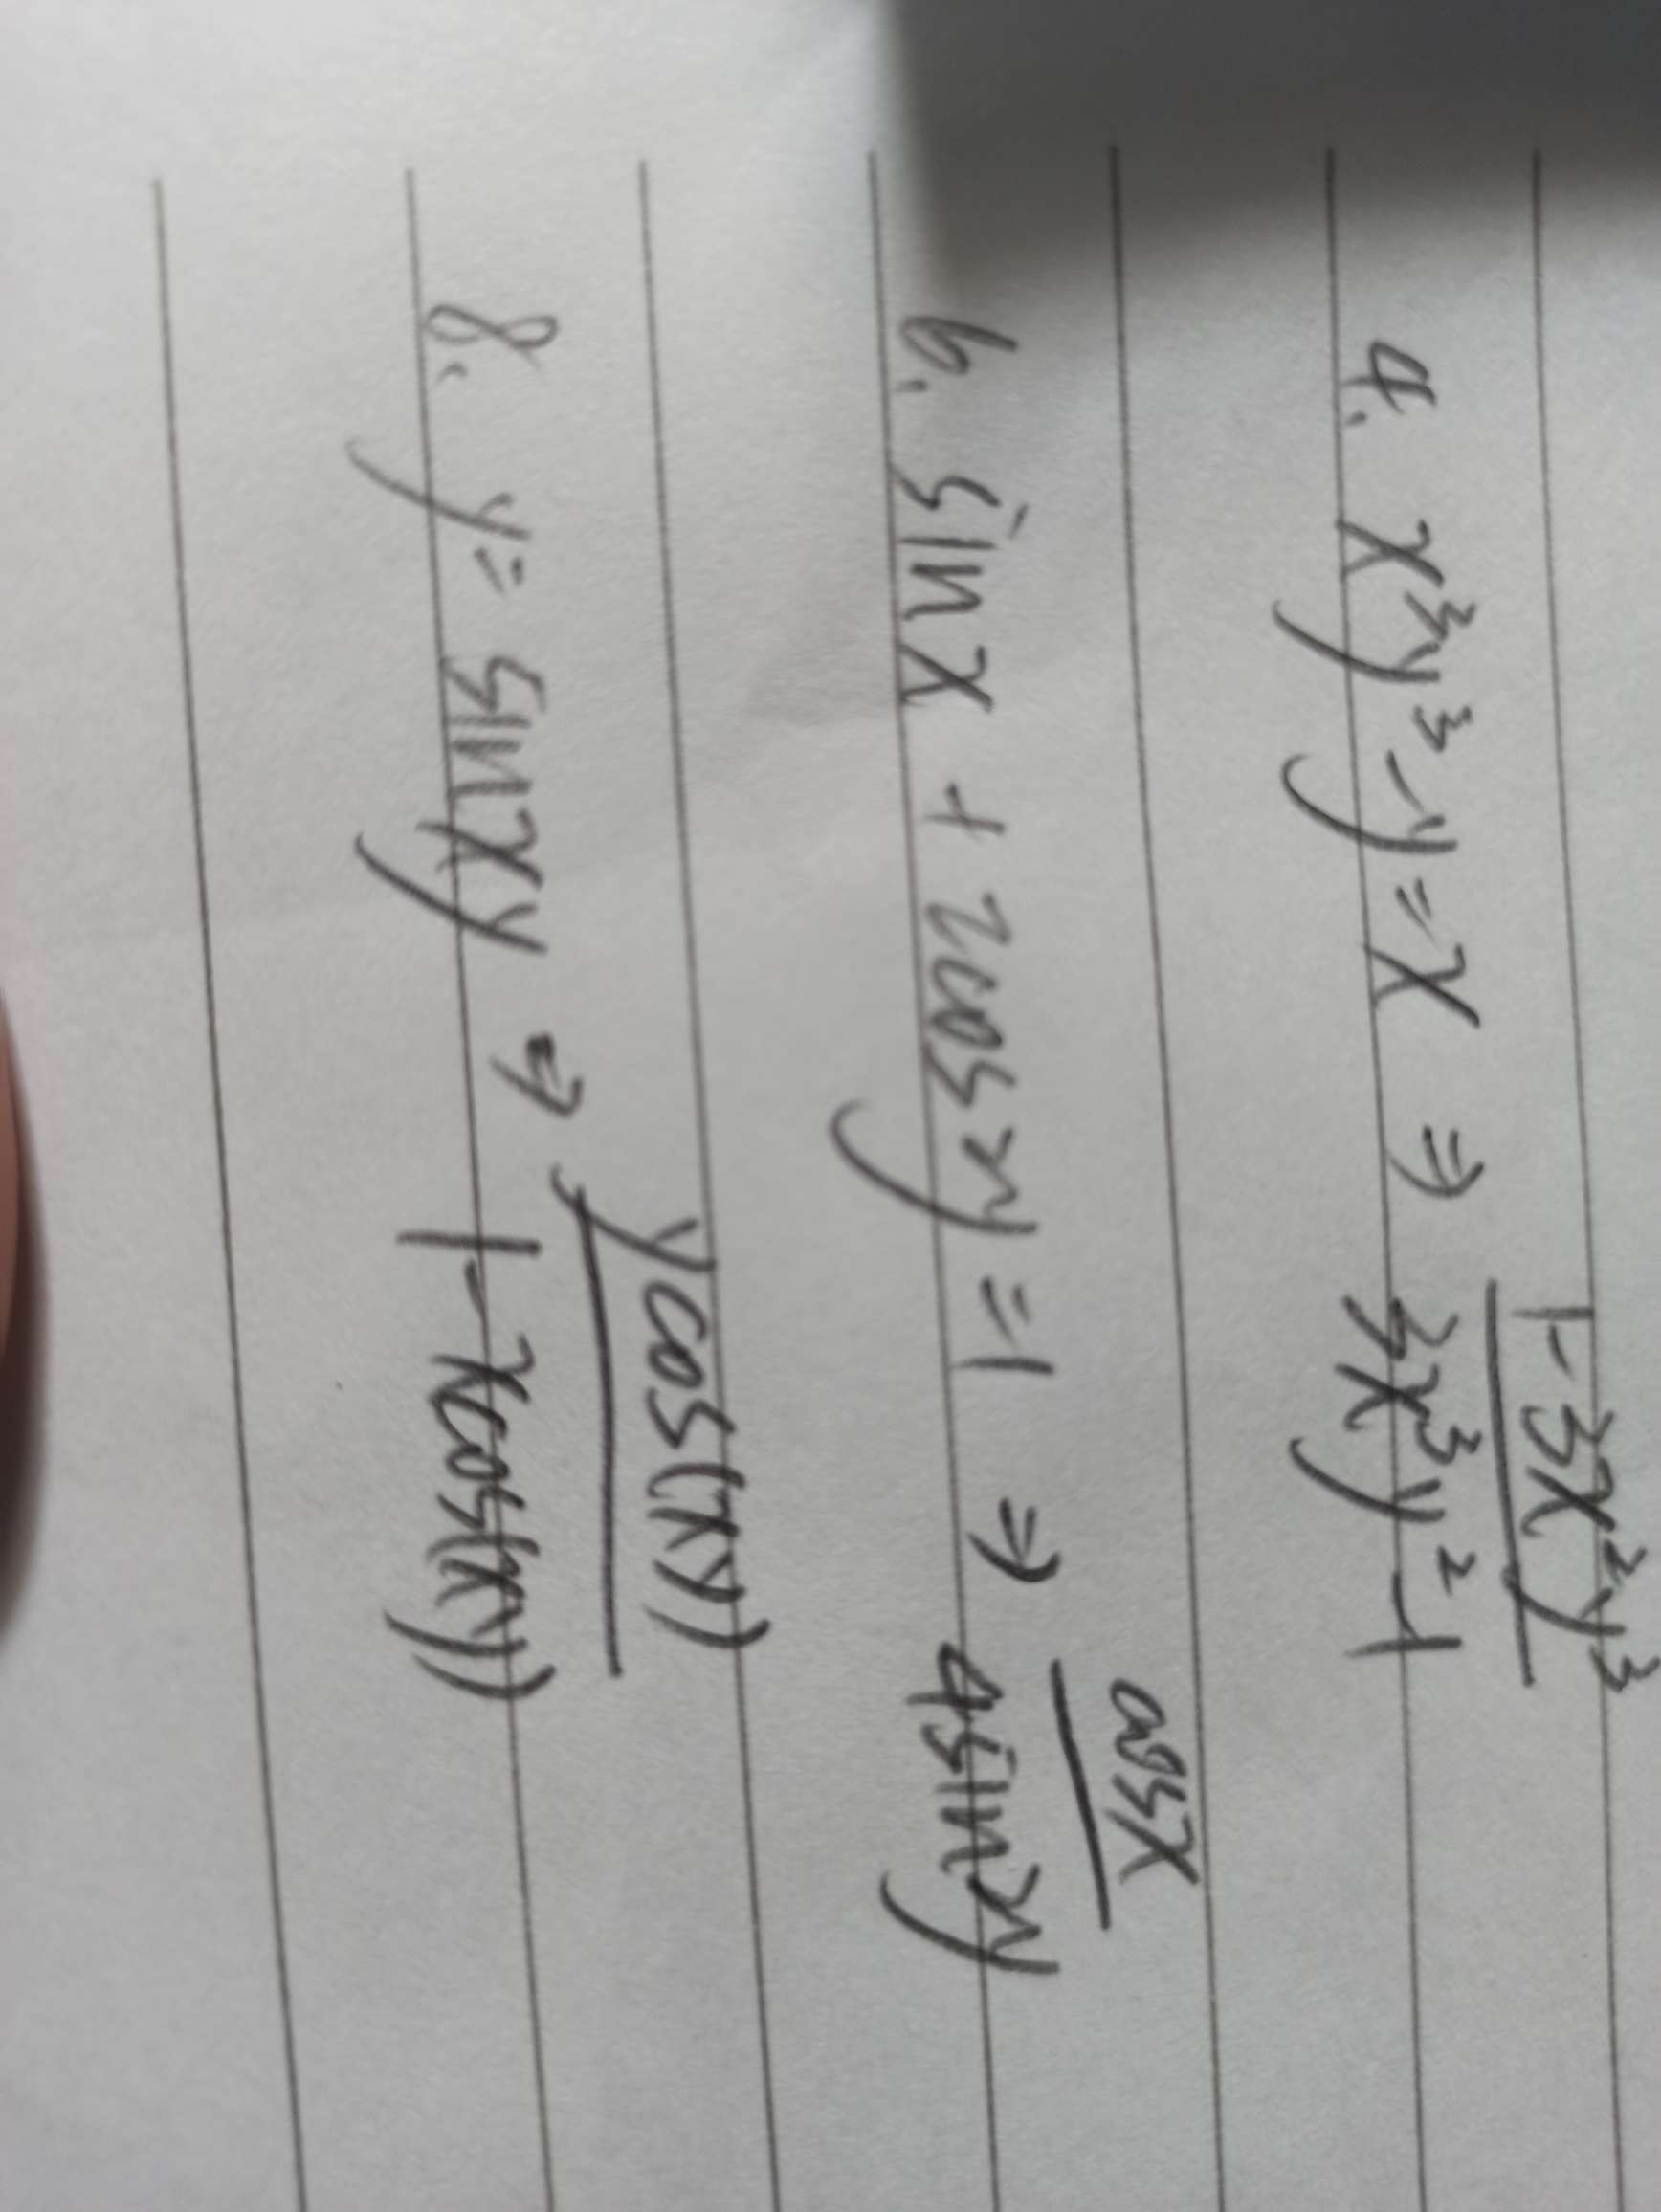 4. x³y³-y=x ⇒ 1-3x²y³ / 3x³y²-1
6. sinx + 2cos2y=1 ⇒ cosx / 4sin2y
8. y= sinxy ⇒ ycos(xy) / 1-xcos(xy)